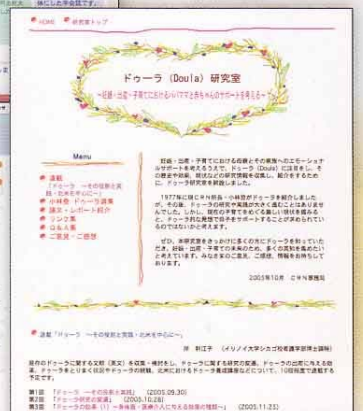 HOME 研究室トップ
ドゥーラ (Doula) 研究室
～妊娠・出産・子育てにおけるパパママと赤ちゃんのサポートを考える～
Menu
連載
「ドゥーラ ～その役割と実践・北米を中心に～」
小林登 ドゥーラ選集
論文・レポート紹介
リンク集
Q&A集
ご意見・ご感想
妊娠・出産・子育てにおける母親とその家族へのエモーショナルサポートを考えるうえで、ドゥーラ (Doula) に注目をし、その歴史や役割、現状などの研究情報を収集し、紹介をするために、ドゥーラ研究室を開設しました。
1977年に現CRN所長・小林登がドゥーラを紹介しましたが、その後、ドゥーラの研究や実践が大きく進むことはありませんでした。しかし、現在の子育てをめぐる厳しい現状を鑑みると、ドゥーラ的な発想で母子をサポートすることが求められているのではないかと考えます。
ぜひ、本研究室をきっかけに多くの方にドゥーラを知っていただき、妊娠・出産・子育ての未来のため、多くの英知を集めたいと考えています。みなさまのご意見、ご感想、情報をお待ちしております。
2005年10月 CRN事務局
連載「ドゥーラ ～その役割と実践・北米を中心に～」
岸 利江子 (イリノイ大学シカゴ校看護学部博士課程)
第1回 「ドゥーラ ～その役割と実践」 (2005.09.30)
第2回 「ドゥーラ研究の変遷」 (2005.10.28)
第3回 「ドゥーラの効果 (1) ～身体面・医療介入に与える効果の種類～」 (2005.11.25)